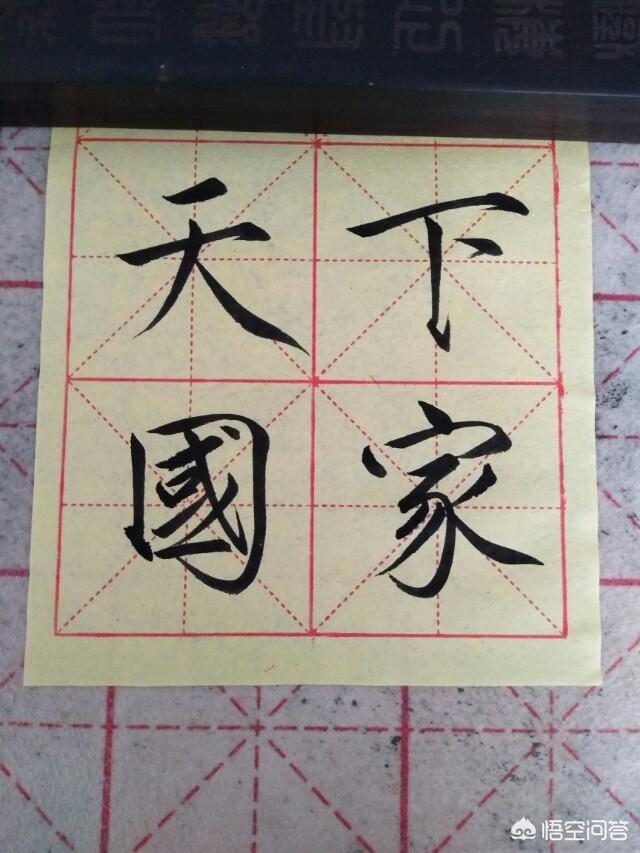 天下
國家
悟空问答